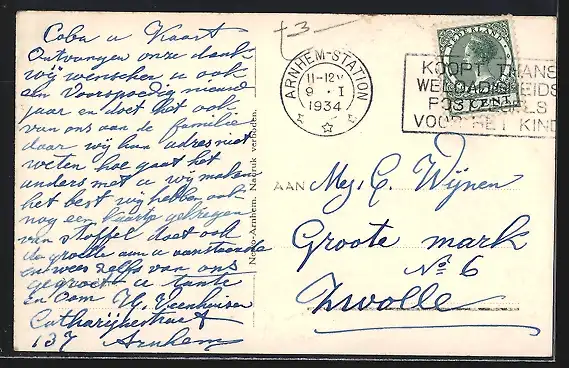 Coba u Kaart
Ontvangen onze dank
wij wenschen u ook
een Voorspoedig nieuw
jaar en doet het ook
van ons aan de familie
daar wij hun adres niet
weten hoe gaat het
anders met u wij maken
het best wij hebben ook
nog een Kaartje gekregen
van Stoffel doet ook
de groette aan u aanstaande
en wees zelfs van ons
gegroet u tante
en Oom H. Veenhuisen
Catharijnestraat
137 Arnhem
+3-
ARNHEM-STATION
11-12V
9 · I
1934
NEDERLAND
CENT
KOOPT THANS
WELDADIGHEIDS
POSTZEGELS
VOOR HET KIND
Nauta-Arnhem. Nadruk verboden.
AAN Mej. C. Wijnen
Groote mark
No 6
Zwolle